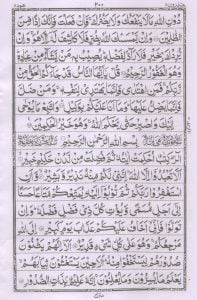 ٢٠٠
دُوْنِ اللّٰهِ مَا لَا يَنْفَعُكَ وَلَا يَضُرُّكَ ۚ فَاِنْ فَعَلْتَ فَاِنَّكَ اِذًا
مِّنَ الظّٰلِمِيْنَ وَاِنْ يَّمْسَسْكَ اللّٰهُ بِضُرٍّ فَلَا كَاشِفَ لَهٗٓ اِلَّا هُوَ ۚ وَاِنْ
يُّرِدْكَ بِخَيْرٍ فَلَا رَآدَّ لِفَضْلِهٖ ؕ يُصِيْبُ بِهٖ مَنْ يَّشَآءُ مِنْ عِبَادِهٖ ؕ
وَهُوَ الْغَفُوْرُ الرَّحِيْمُ قُلْ يٰٓاَيُّهَا النَّاسُ قَدْ جَآءَكُمُ الْحَقُّ مِنْ
رَّبِّكُمْ ۚ فَمَنِ اهْتَدٰى فَاِنَّمَا يَهْتَدِيْ لِنَفْسِهٖ ۚ وَمَنْ ضَلَّ
فَاِنَّمَا يَضِلُّ عَلَيْهَا ۚ وَمَآ اَنَا عَلَيْكُمْ بِوَكِيْلٍ وَاتَّبِعْ مَا يُوْحٰٓى
اِلَيْكَ وَاصْبِرْ حَتّٰى يَحْكُمَ اللّٰهُ ۚ وَهُوَ خَيْرُ الْحٰكِمِيْنَ
بِسْمِ اللّٰهِ الرَّحْمٰنِ الرَّحِيْمِ
الٓرٰ ۫ كِتٰبٌ اُحْكِمَتْ اٰيٰتُهٗ ثُمَّ فُصِّلَتْ مِنْ لَّدُنْ حَكِيْمٍ خَبِيْرٍ
اَلَّا تَعْبُدُوْٓا اِلَّا اللّٰهَ ؕ اِنَّنِيْ لَكُمْ مِّنْهُ نَذِيْرٌ وَّبَشِيْرٌ وَّاَنِ
اسْتَغْفِرُوْا رَبَّكُمْ ثُمَّ تُوْبُوْٓا اِلَيْهِ يُمَتِّعْكُمْ مَّتَاعًا حَسَنًا
اِلٰٓى اَجَلٍ مُّسَمًّى وَّيُؤْتِ كُلَّ ذِيْ فَضْلٍ فَضْلَهٗ ؕ وَاِنْ
تَوَلَّوْا فَاِنِّيْٓ اَخَافُ عَلَيْكُمْ عَذَابَ يَوْمٍ كَبِيْرٍ اِلَى اللّٰهِ
مَرْجِعُكُمْ ۚ وَهُوَ عَلٰى كُلِّ شَيْءٍ قَدِيْرٌ اَلَآ اِنَّهُمْ يَثْنُوْنَ
صُدُوْرَهُمْ لِيَسْتَخْفُوْا مِنْهُ ؕ اَلَا حِيْنَ يَسْتَغْشُوْنَ ثِيَابَهُمْ ۙ
يَعْلَمُ مَا يُسِرُّوْنَ وَمَا يُعْلِنُوْنَ ۚ اِنَّهٗ عَلِيْمٌۢ بِذَاتِ الصُّدُوْرِ